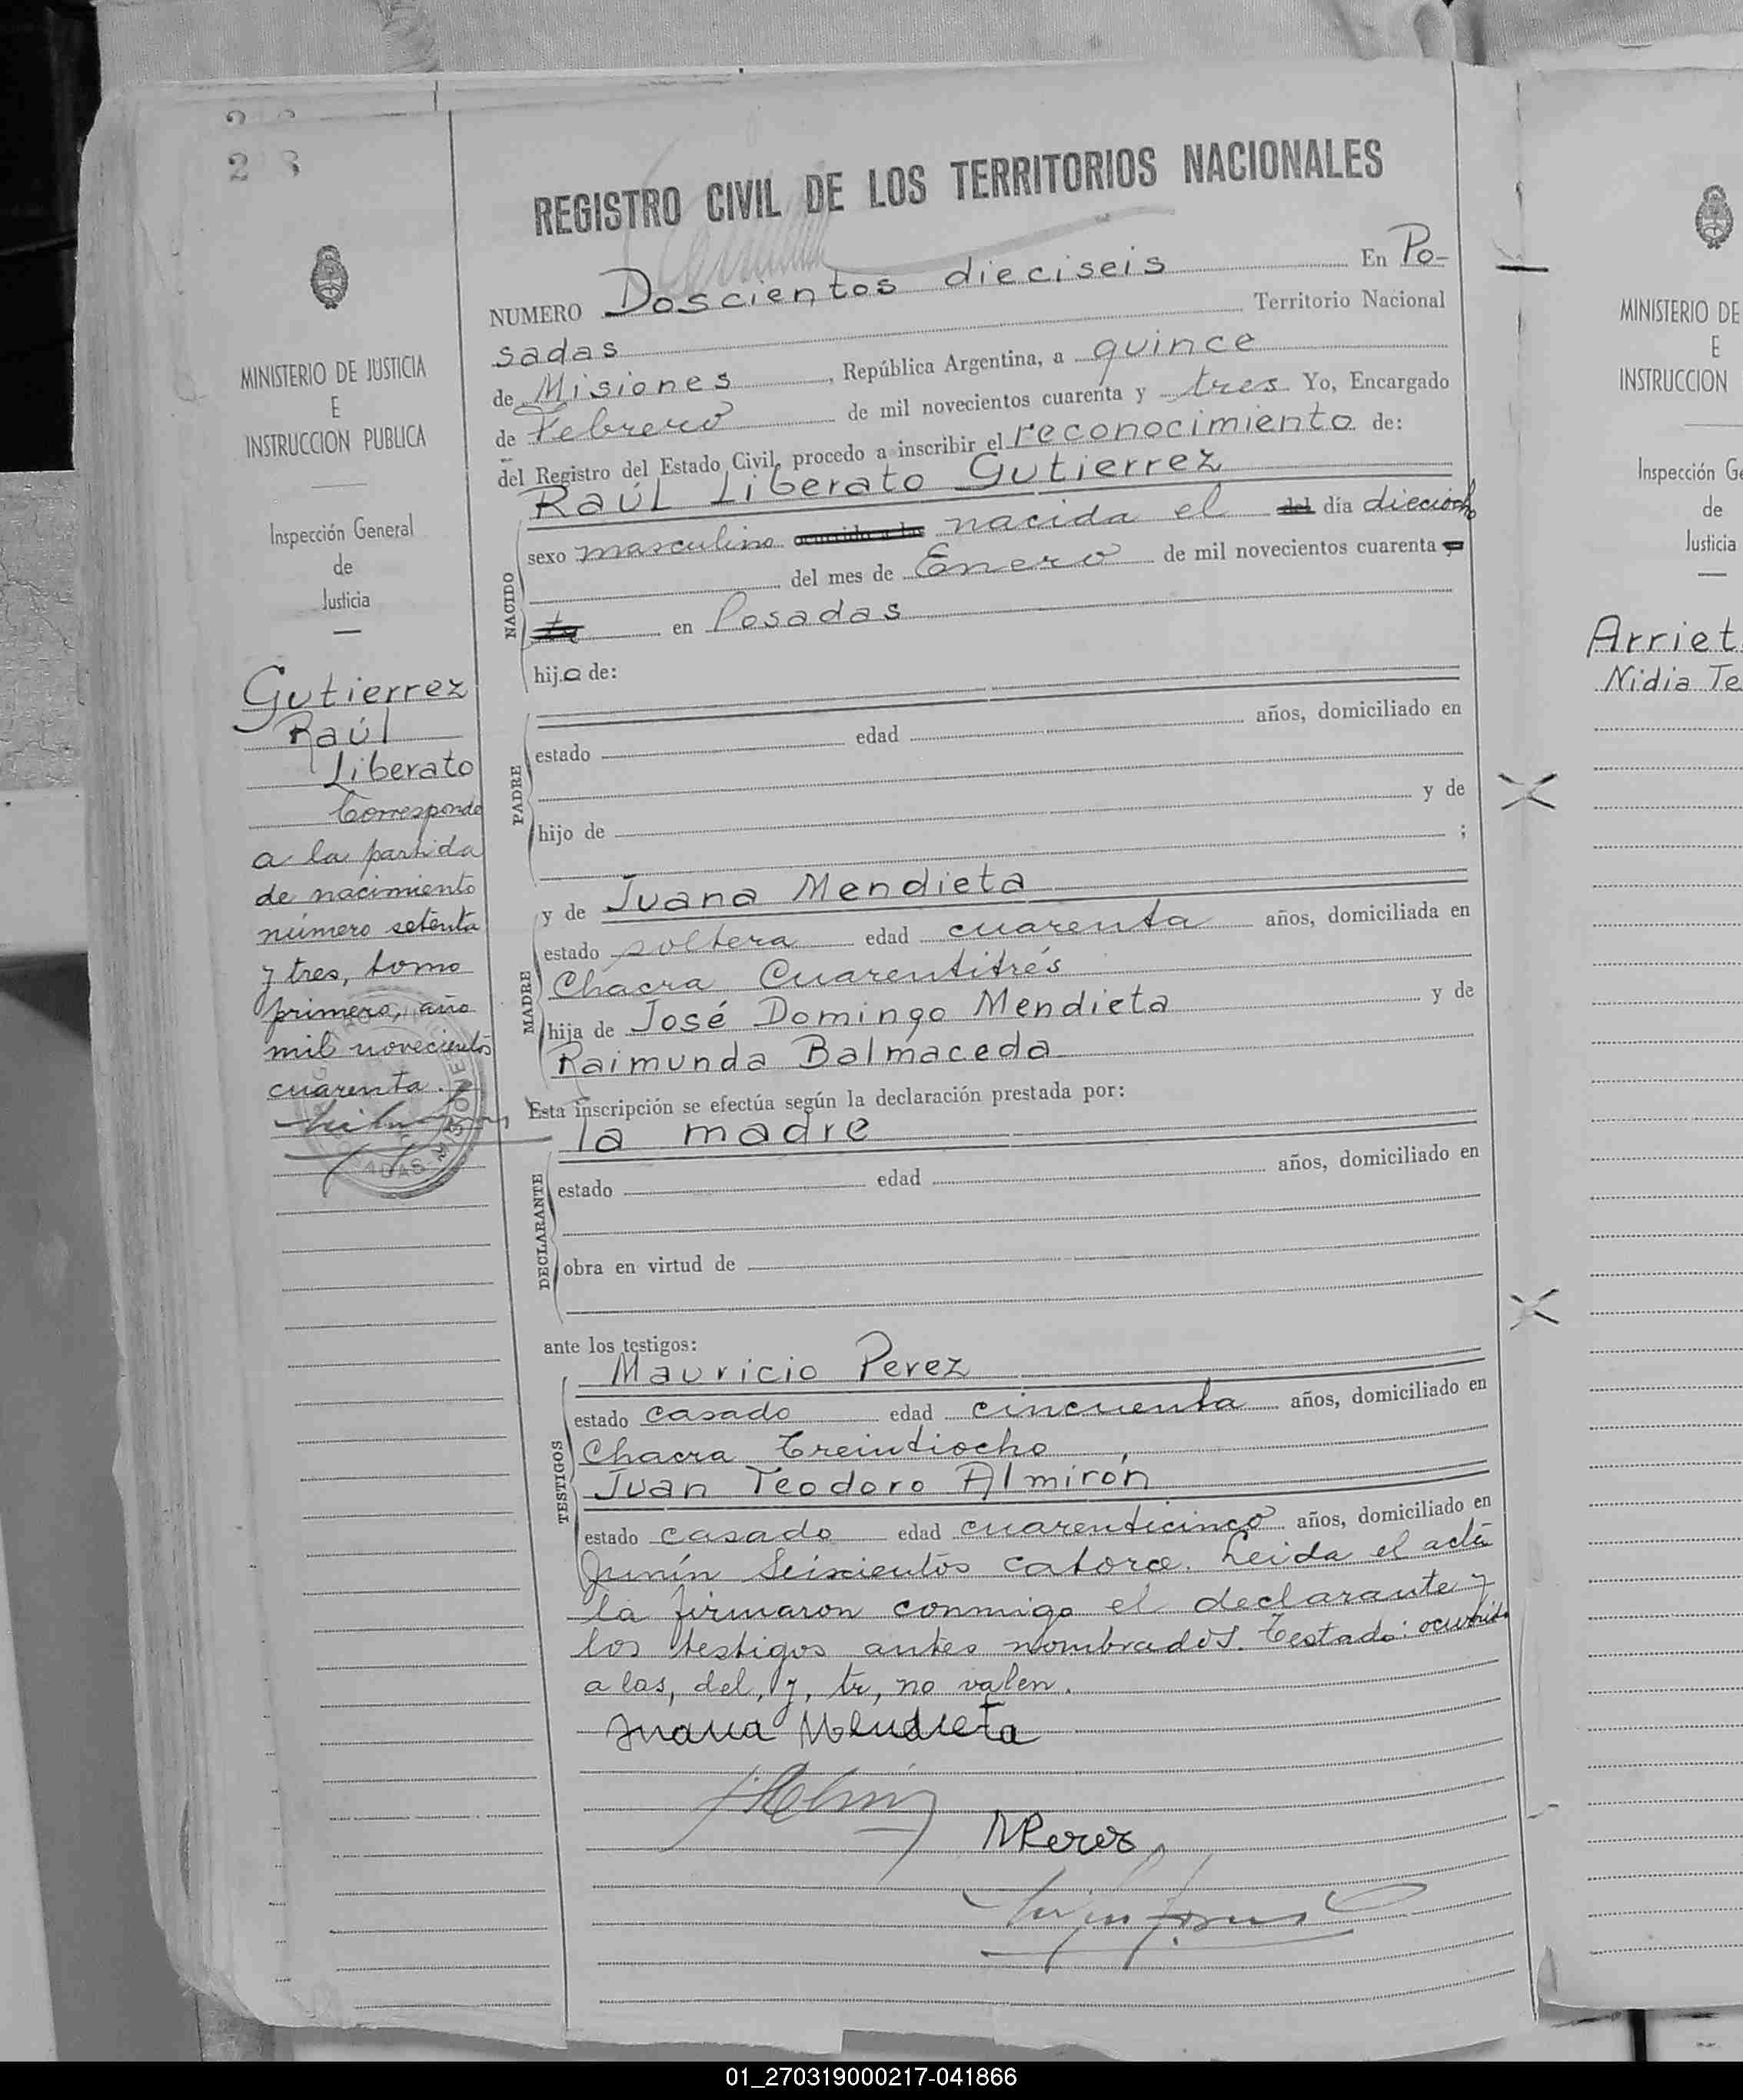 2 8
REGISTRO CIVIL DE LOS TERRITORIOS NACIONALES
NUMERO Doscientos dieciseis En Po-
sadas Territorio Nacional
de Misiones, República Argentina, a quince
de Febrero de mil novecientos cuarenta y tres Yo, Encargado
del Registro del Estado Civil, procedo a inscribir el reconocimiento de:
Raúl Liberato Gutierrez
NACIDO
sexo masculino ocurrido a las nacida el del día dieciocho
del mes de Enero de mil novecientos cuarenta y
tr en Posadas
hijo de:
PADRE
estado edad años, domiciliado en
y de
hijo de ;
MADRE
y de Juana Mendieta
estado soltera edad cuarenta años, domiciliada en
Chacra Cuarentitrés
hija de José Domingo Mendieta y de
Raimunda Balmaceda
Esta inscripción se efectúa según la declaración prestada por:
la madre
DECLARANTE
estado edad años, domiciliado en
obra en virtud de
ante los testigos:
TESTIGOS
Mauricio Perez
estado casado edad cincuenta años, domiciliado en
Chacra Treintiocho
Juan Teodoro Almirón
estado casado edad cuarenticinco años, domiciliado en
Junín Seiscientos catorce. Leida el acta
la firmaron conmigo el declarante y
los testigos antes nombrados. Testado: ocurrido
a las, del, y, tr, no valen.
Juana Mendieta
MPerez
MINISTERIO DE JUSTICIA
E
INSTRUCCION PUBLICA
Inspección General
de
Justicia
Gutierrez
Raúl
Liberato
Corresponde
a la partida
de nacimiento
número setenta
y tres, tomo
primero, año
mil novecientos
cuarenta.
MISIONES
MINISTERIO DE
E
INSTRUCCION
Inspección Ge
de
Justicia
Arriet
Nidia Te
01_270319000217-041866